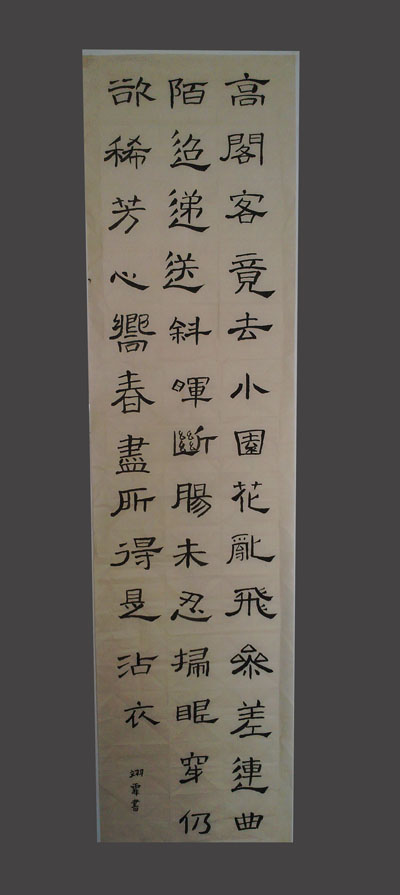 高閣客竟去小園花亂飛參差連曲
陌迢递送斜暉斷腸未忍掃眼穿仍
欲稀芳心嚮春盡所得是沾衣
書